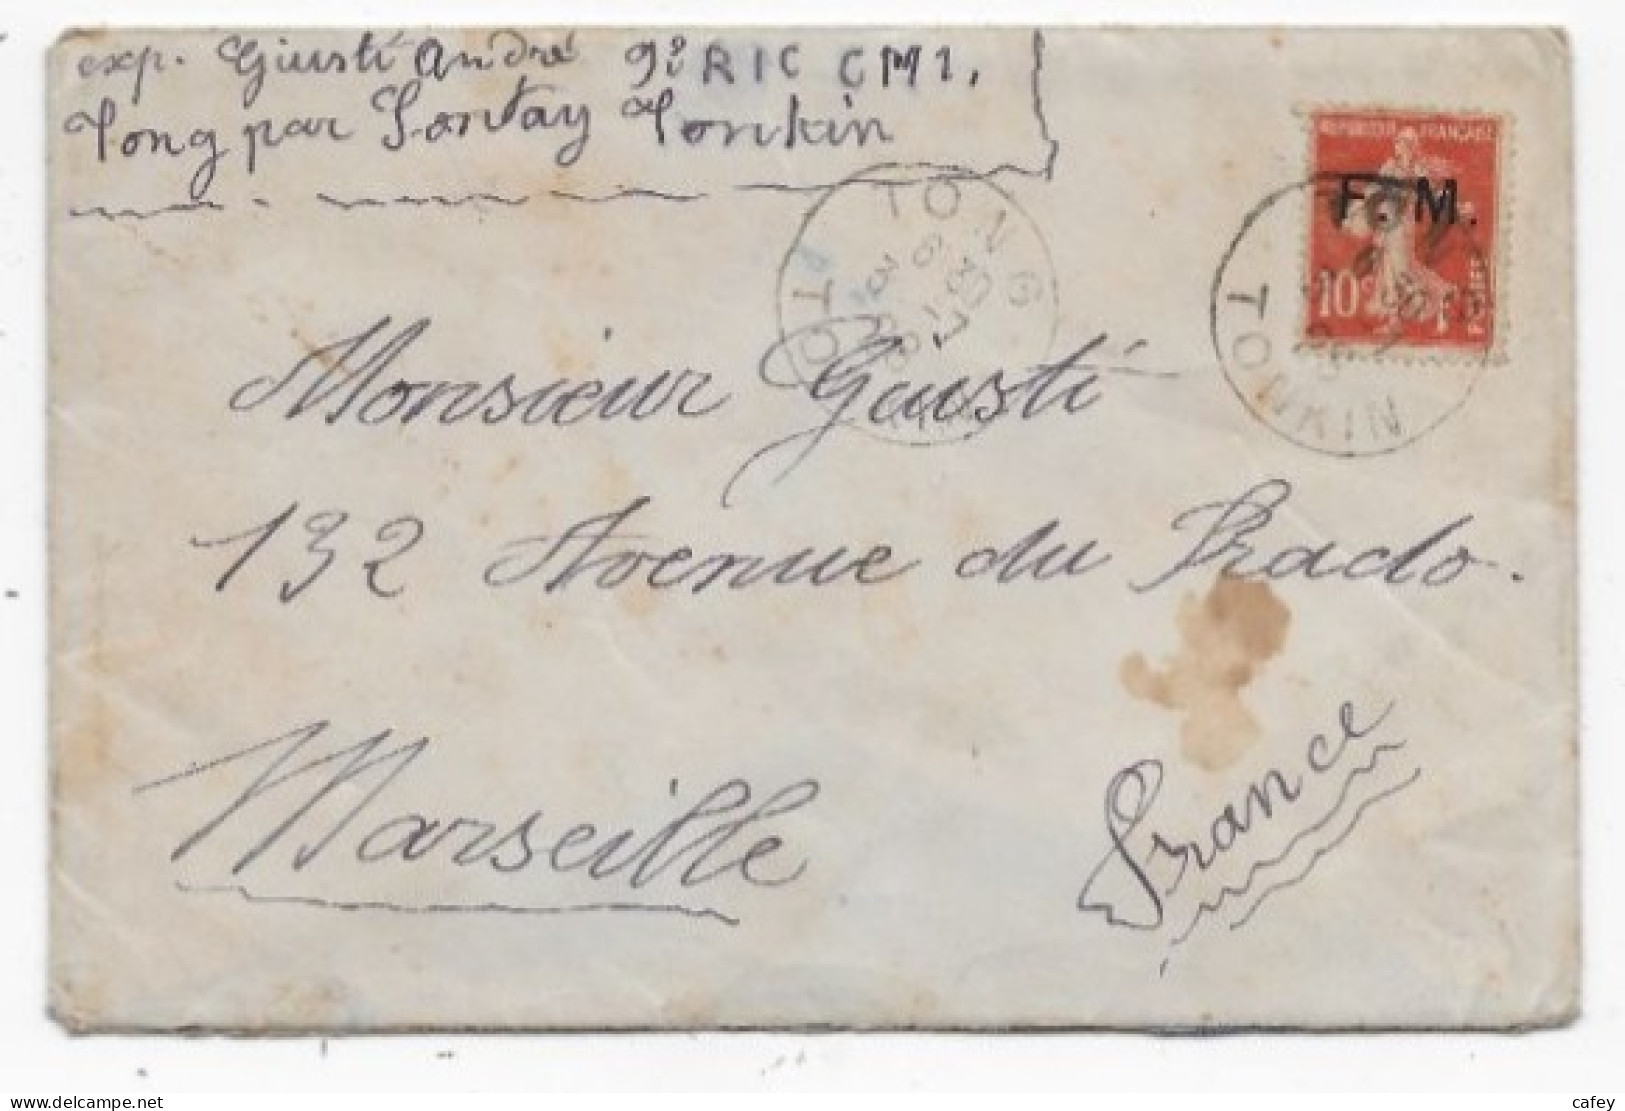 exp. Giusti André 9e RIC CM1.
Tong par Sontay Tonkin
REPUBLIQUE FRANÇAISE
F. M.
10c
TONG
TONKIN
Monsieur Giusti
132 Avenue du Prado.
Marseille
France
delcampe.net
cafey